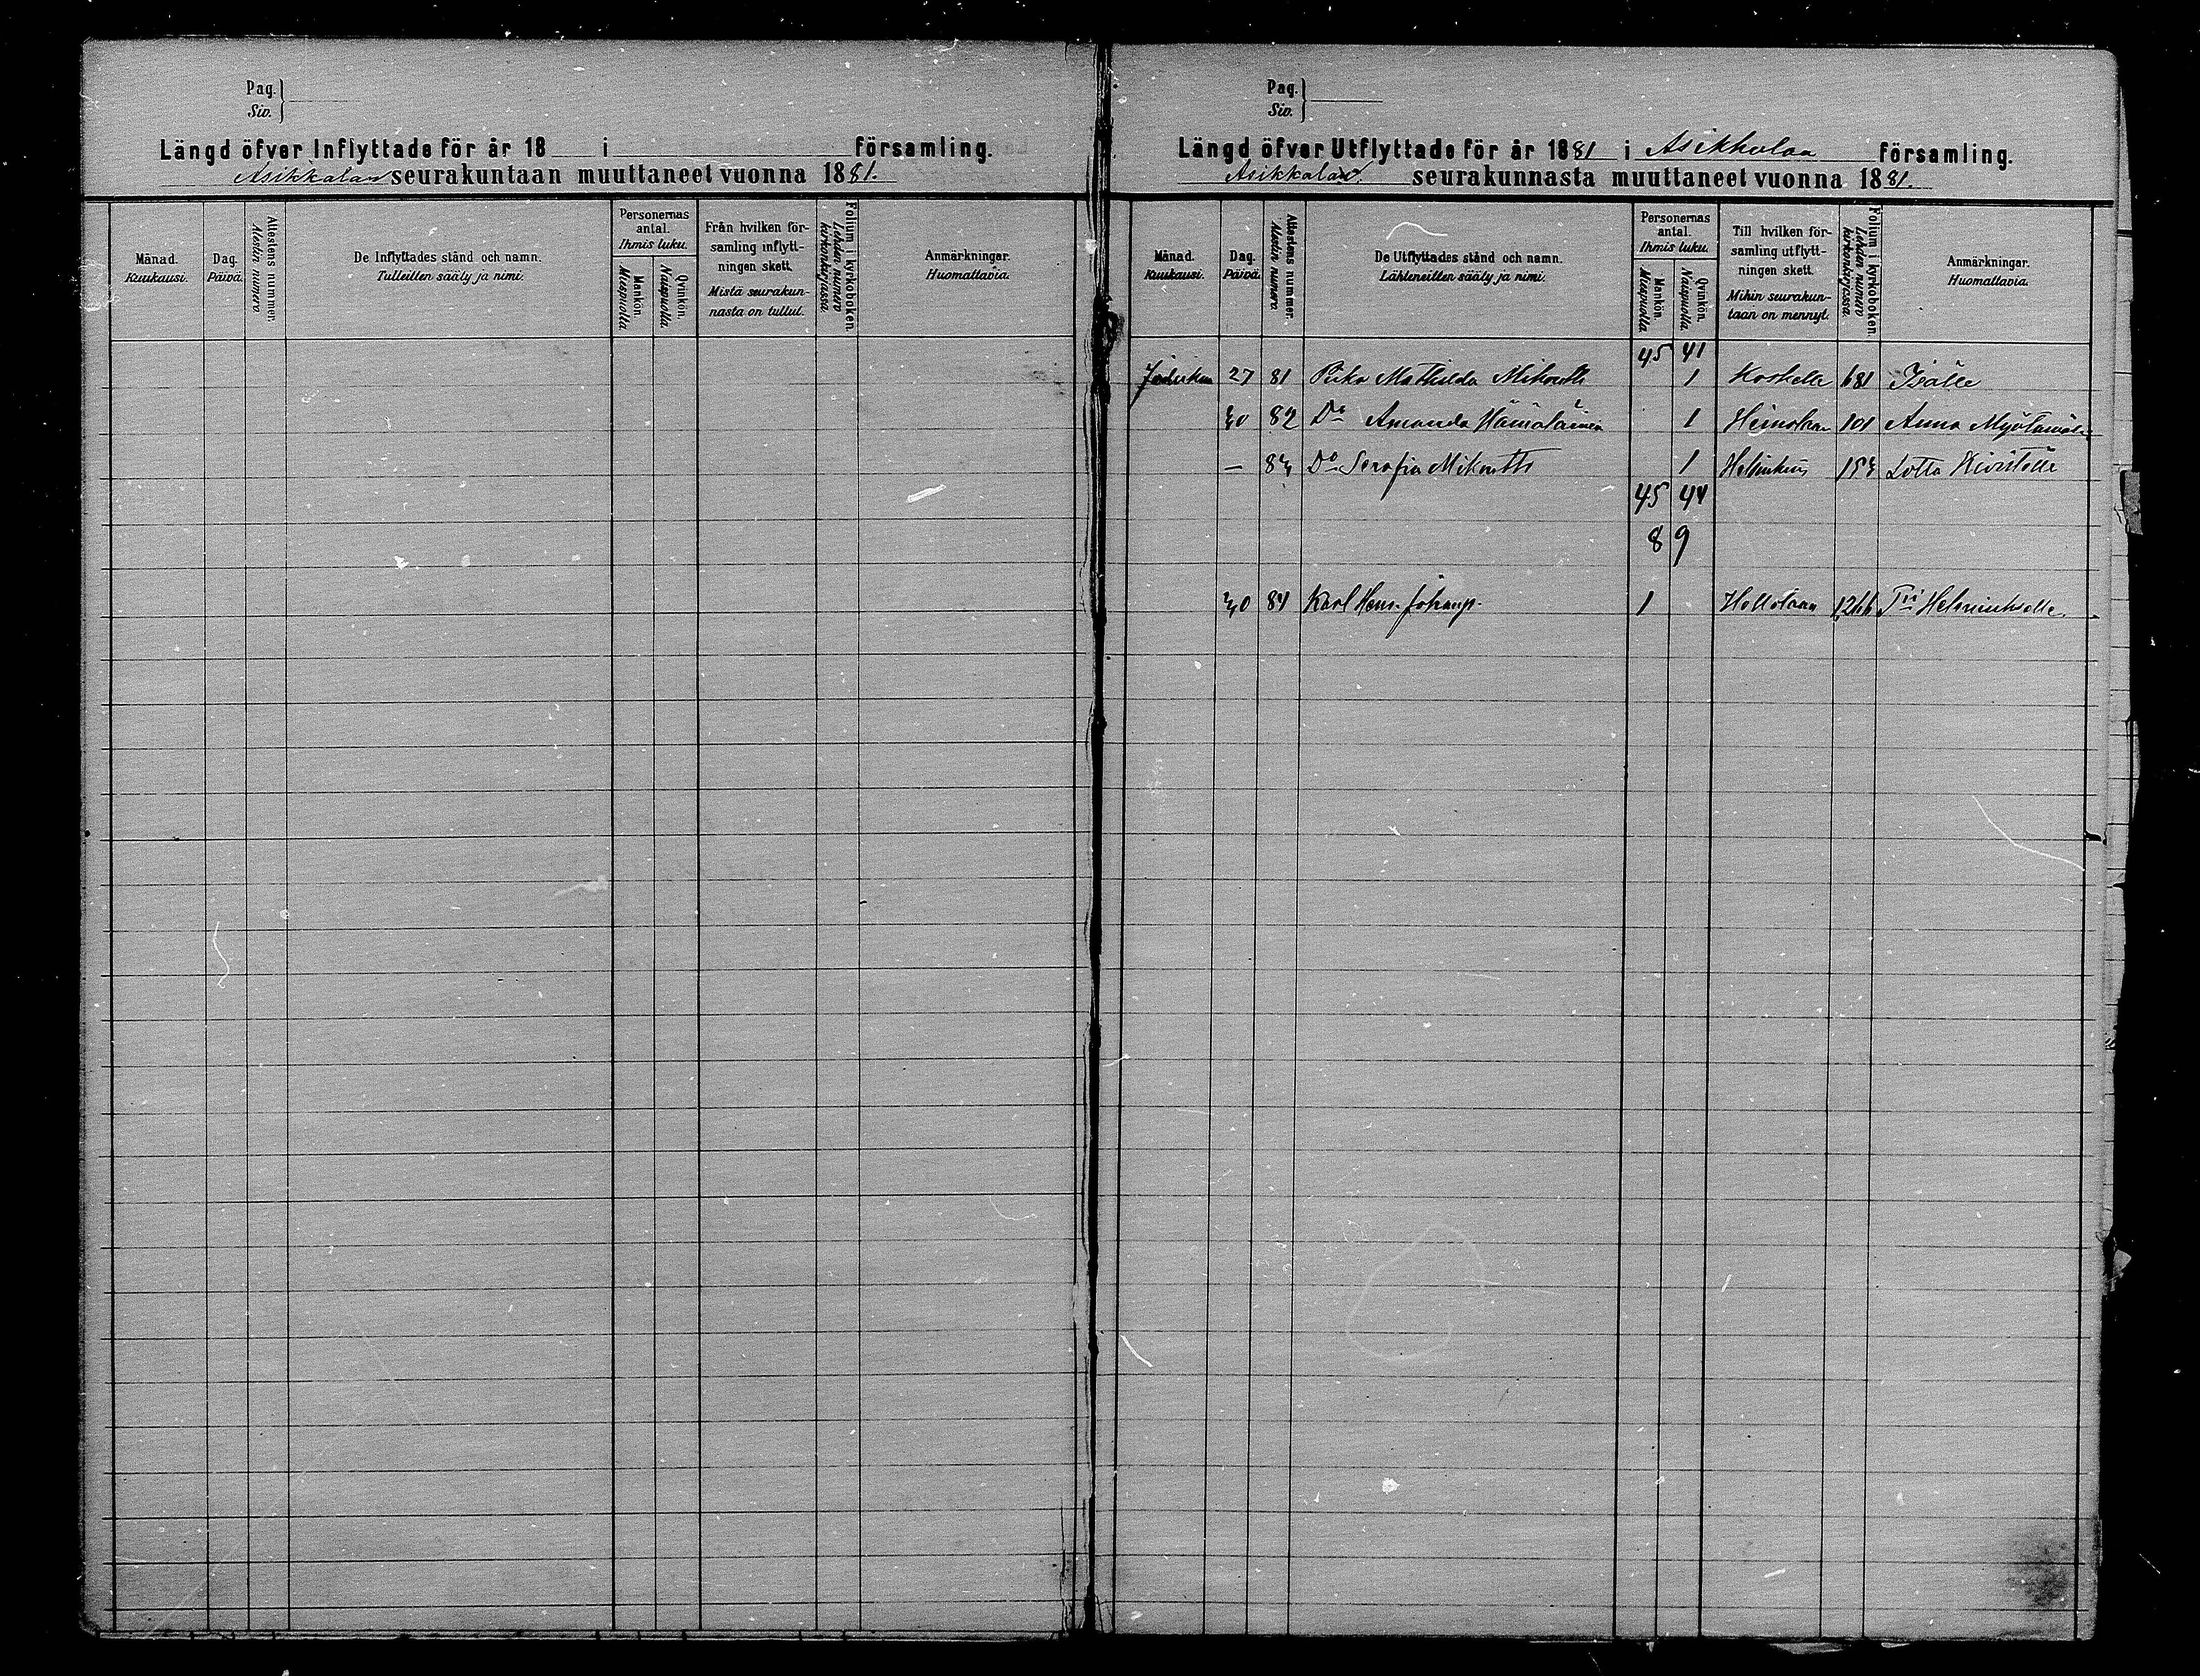 Pag.
Siv.
Längd öfver Inflyttade för år 18 i församling.
Asikkalan seurakuntaan muuttaneet vuonna 1881.
Månad. Kuukausi.
Dag. Päivä.
Attestens nummer. Atestin numero.
De Inflyttades stånd och namn. Tulleitten sääly ja nimi.
Personernas antal. Ihmis luku.
Mankön. Miespuolia
Qvinkön. Naispuolia
Från hvilken församling inflyttningen skett. Mistä seurakunnasta on tullut.
Folium i kyrkoboken. Lehden numero kirkonkirjassa.
Anmärkningar. Huomattavia.
Pag.
Siv.
Längd öfver Utflyttade för år 1881 i Asikkalan församling.
Asikkalan seurakunnasta muuttaneet vuonna 1881.
Månad. Kuukausi.
Dag. Päivä.
Attestens nummer. Atestin numero.
De Utflyttades stånd och namn. Lähteneitten sääly ja nimi.
Personernas antal. Ihmis luku.
Mankön. Miespuolia
Qvinkön. Naispuolia
Till hvilken församling utflyttningen skett. Mihin seurakuntaan on mennyt.
Folium i kyrkoboken. Lehden numero kirkonkirjassa.
Anmärkningar. Huomattavia.
45 41
27 81 Piika Mathilda 1 Koskelle 681 Isälle
30 82 Do Amanda Hämäläinen 1 Heinolaan 101 Anna
— 83 Do Serafia 1 Helsinkiin 153 Lotta
45 44
8 9
30 84 Karl Henr. Johansp. 1 Hollolaan 1266